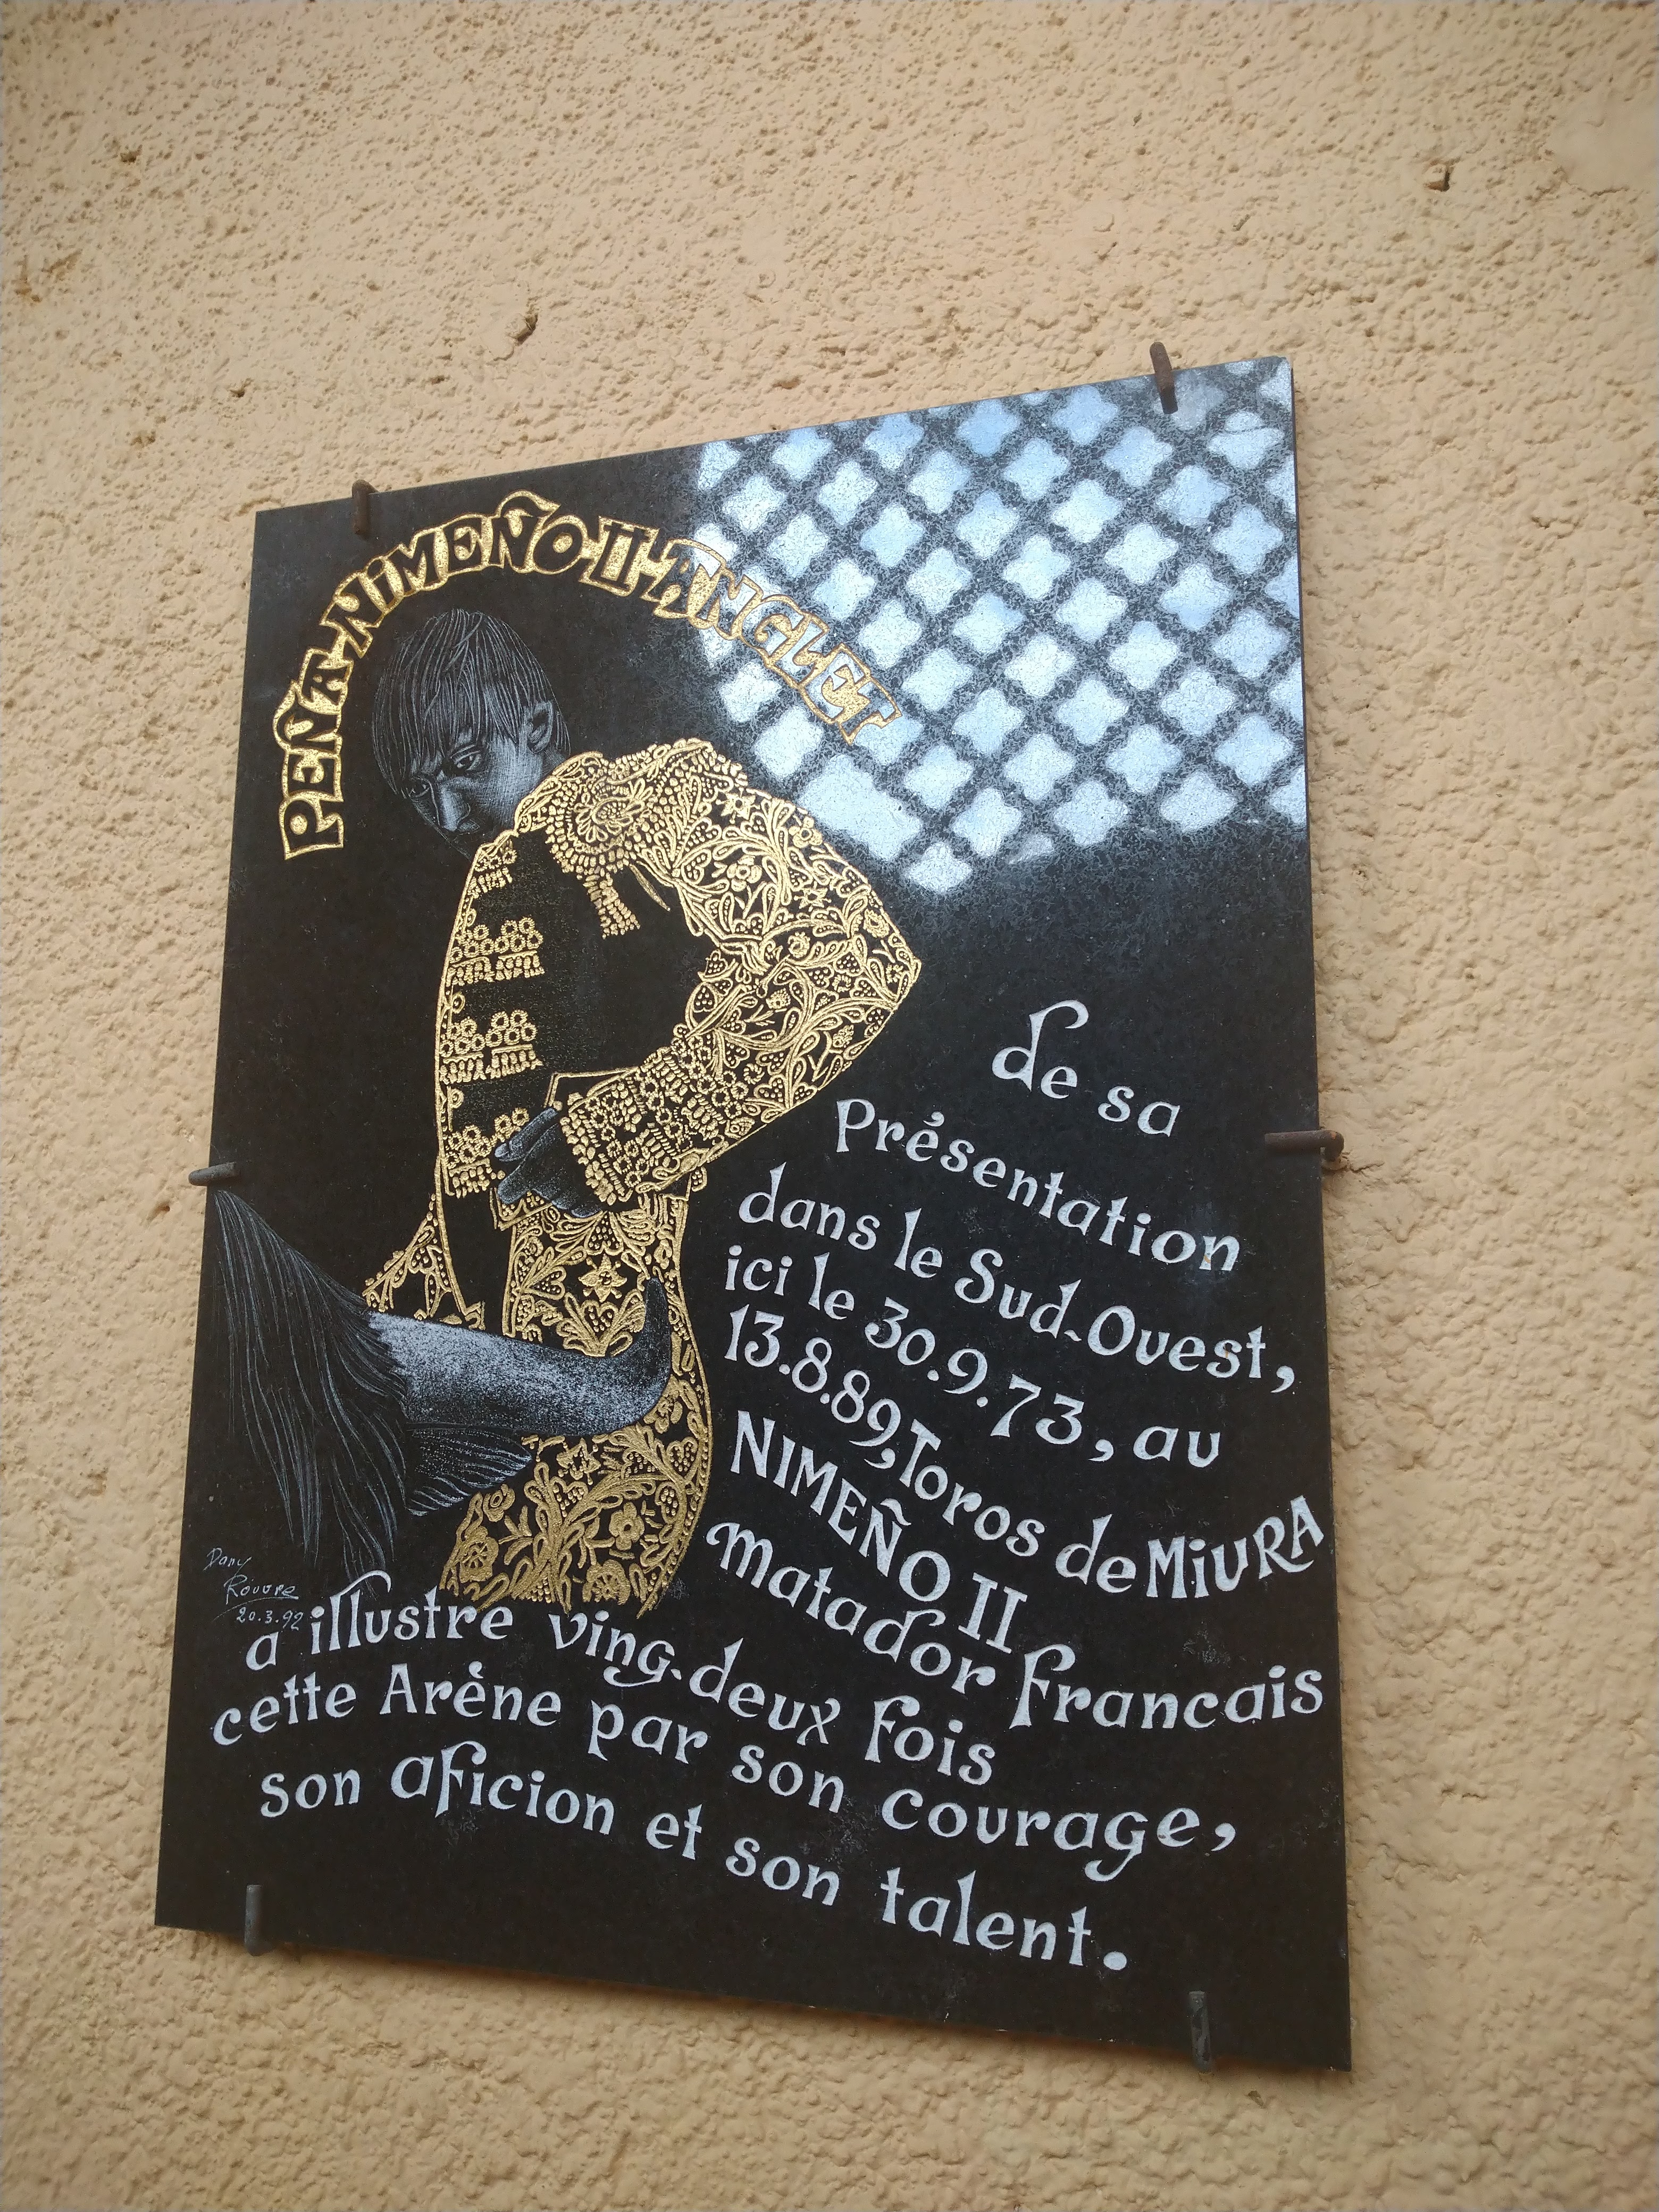 PEÑA-NIMEÑO II-ANGLET
de sa
Présentation
dans le Sud-Ouest,
ici le 30.9.73, au
13.8.89, Toros de MiURA
NIMEÑO II
Matador Francais
a illustre ving-deux fois
cette Arène par son courage,
son aficion et son talent.
Dany
Rouvre
20.3.92